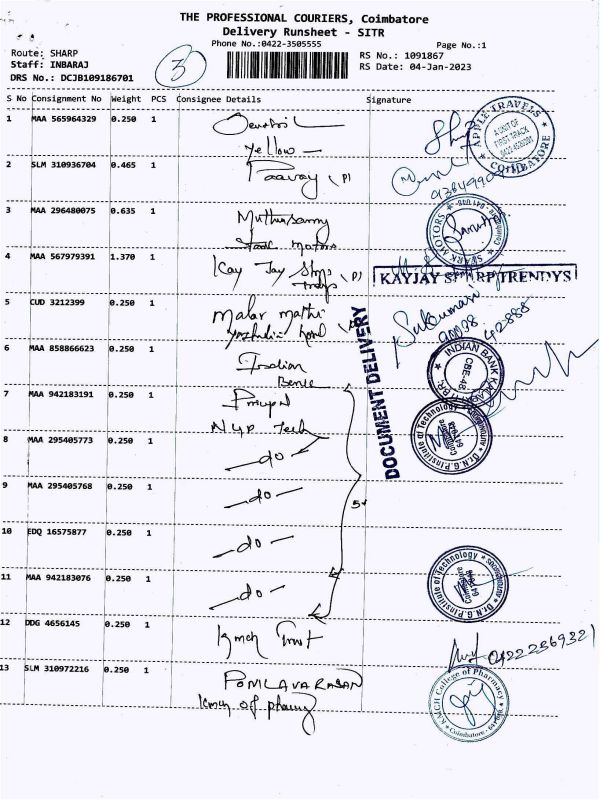 THE PROFESSIONAL COURIERS, Coimbatore
Delivery Runsheet - SITR
Phone No.:0422-3505555
Page No.:1
Route: SHARP
Staff: INBARAJ
DRS No.: DCJB109186701
3
RS No.: 1091867
RS Date: 04-Jan-2023
S No Consignment No Weight PCS Consignee Details Signature
1 MAA 565964329 0.250 1
Yellow
APPLE TRAVELS
A UNIT OF
FIRST TRACK
COIMBATORE
2 SLM 310936704 0.465 1 Paavay (P)
3 MAA 296480075 0.635 1 Muthusamy
Spark Motors
SPARK MOTORS
4 MAA 567979391 1.370 1 Kay Jay (P)
KAYJAY SHARP TRENDYS
5 CUD 3212399 0.250 1 Malar mathi
Sukumari
90038 42888
DOCUMENT DELIVERY
6 MAA 858866623 0.250 1 Indian
Bank
INDIAN BANK
CBE-48
7 MAA 942183191 0.250 1 Principal
NGP Tech
Dr.N.G.P.Institute of Technology
Coimbatore
8 MAA 295405773 0.250 1 -do-
9 MAA 295405768 0.250 1 -do-
10 EDQ 16575877 0.250 1 -do-
11 MAA 942183076 0.250 1 -do-
Dr.N.G.P.Institute of Technology
Coimbatore
12 DDG 4656145 0.250 1 kmch Trust
04222369321
13 SLM 310972216 0.250 1 PONILAVARASAN
kmch of pharmy
KMCH College of Pharmacy
Coimbatore